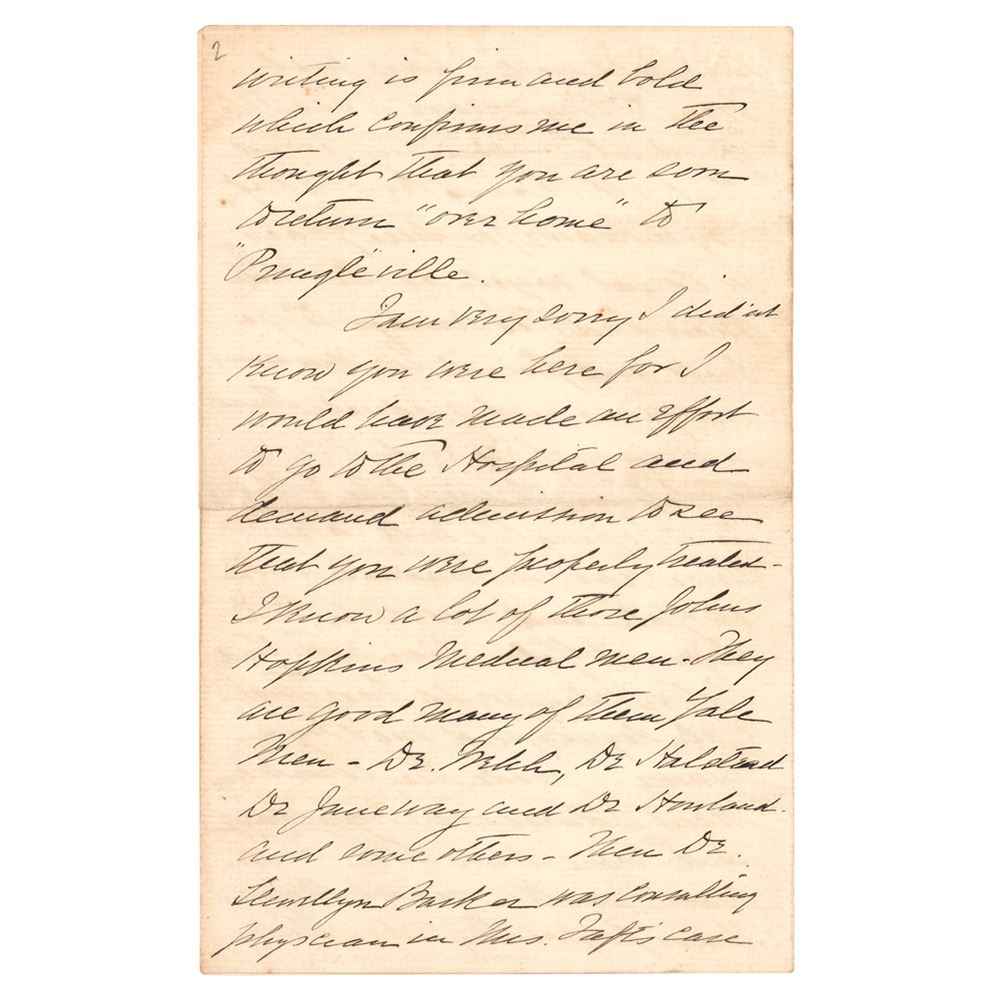 2
writing is firm and bold
which confirms me in the
thought that you are soon
to return "over home" to
"Pringle"ville.
I am very sorry I did'nt
know you were here for I
would have made an effort
to go to the Hospital and
demand admission to see
that you were properly treated -
I know a lot of those Johns
Hopkins Medical men - They
are good many of them Yale
Men - Dr. Welch, Dr Halstead
Dr Janeway and Dr Howland -
and some others - Then Dr.
Llewellyn Barker was consulting
physician in Mrs. Taft's case